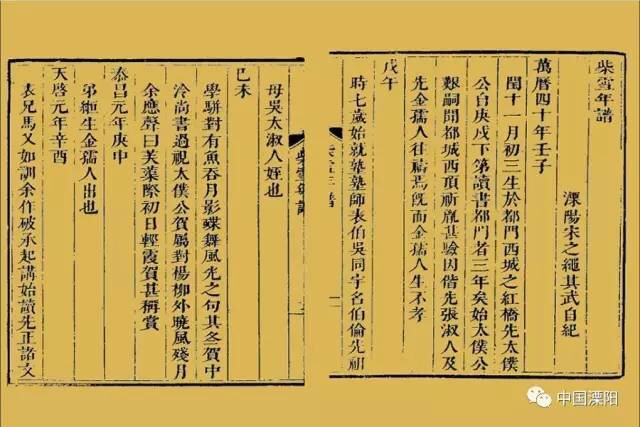 柴雪年譜
溧陽宋之繩其武自紀
萬曆四十年壬子
閏十一月初三生於都門西城之紅橋先太僕
公自庚戌下第讀書都門者三年矣始太僕公
艱嗣聞都城西頂祈胤甚驗因偕先張淑人及
先金孺人往禱焉旣而金孺人生不孝
戊午
時七歲始就塾塾師表伯吳同宇名伯倫先祖
柴雪年譜
母吳太淑人姪也
己未
學駢對有魚吞月影蝶舞風光之句其冬賀中
冷尚書過視太僕公賀屬對楊柳外曉風殘月
余應聲曰芙蕖際初日輕霞賀甚稱賞
泰昌元年庚申
弟
生金孺人出也
天啓元年辛酉
表兄馬又如訓余作破承起講始讀先正諸文
中国溧阳